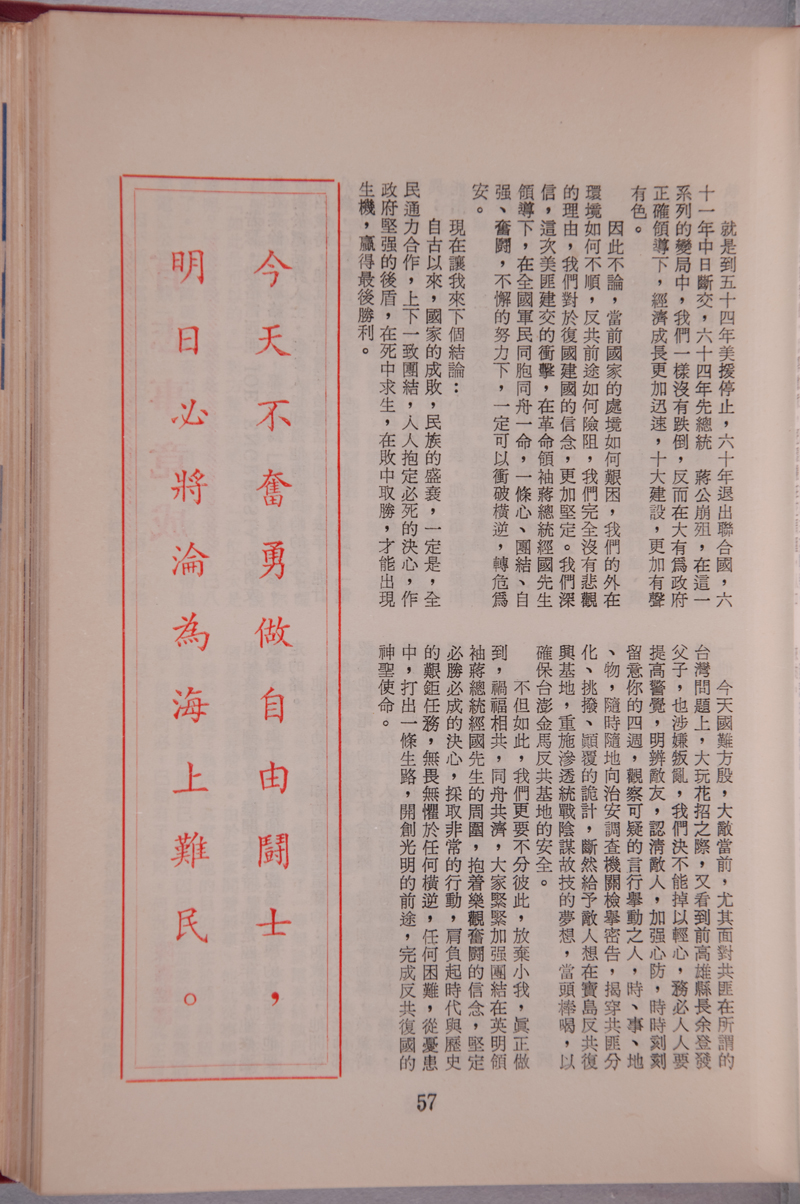 就是到五十四年美援停止，六十年退出聯合國，六
十一年中日斷交，六十四年先總統　蔣公崩殂，在這一
系列的變局中，我們一樣沒有跌倒，反而在大有為政府
正確領導下，經濟成長更加迅速，十大建設，更加有聲
有色。
因此不論，當前國家的處境如何艱困，我們的外在
環境如何不順，反共前途如何險阻，我們完全沒有悲觀
的理由，我們對於復國建國的信念，更加堅定。我們深
信，這次美匪建交的衝擊，在革命領袖蔣總統經國先生
領導下，在全國軍民同胞同舟一命，一條心、團結、自
强、奮鬪，不懈的努力下，一定可以衝破橫逆，轉危爲
安。
現在讓我來下個結論：
自古以來，國家的成敗，民族的盛衰，一定是，全
民通力合作，上下一致團結，人人抱定必死的決心，作
政府堅强的後盾，在死中求生，在敗中取勝，才能出現
生機，贏得最後勝利。
今天國難方殷，大敵當前，尤其面對共匪在所謂的
台灣問題上，大玩花招之際，又看到前高雄縣長余登發
父子，也涉嫌叛亂，我們決不能掉以輕心，務必人人要
提高警覺，明辨敵友，認清敵人，加强心防，時時刻刻
留意你的四週，觀察可疑的言行舉動之人，時、事、地
、物，隨時隨地向治安調查機關檢舉密告，揭穿共匪分
化、挑撥、顚覆的詭計，斷然給予敵人想在寶島反共復
興基地，重施滲透統戰陰謀故技的夢想，當頭捧喝，以
確保台澎金馬反共基地的安全。
不但如此，我們更要不分彼此，放棄小我，眞正做
到，禍福相共，同舟共濟，大家緊緊加强團結在英明領
袖蔣總統經國先生的周圍，抱着樂觀奮鬪的信念，堅定
必勝必成的決心，採取非常的行動，肩負起時代與歷史
的艱鉅任務，無畏無懼於任何橫逆，任何困難，從憂患
中，打出一條生路，開創光明的前途，完成反共復國的
神聖使命。
今天不奮勇做自由鬪士，
明日必將淪為海上難民。
57